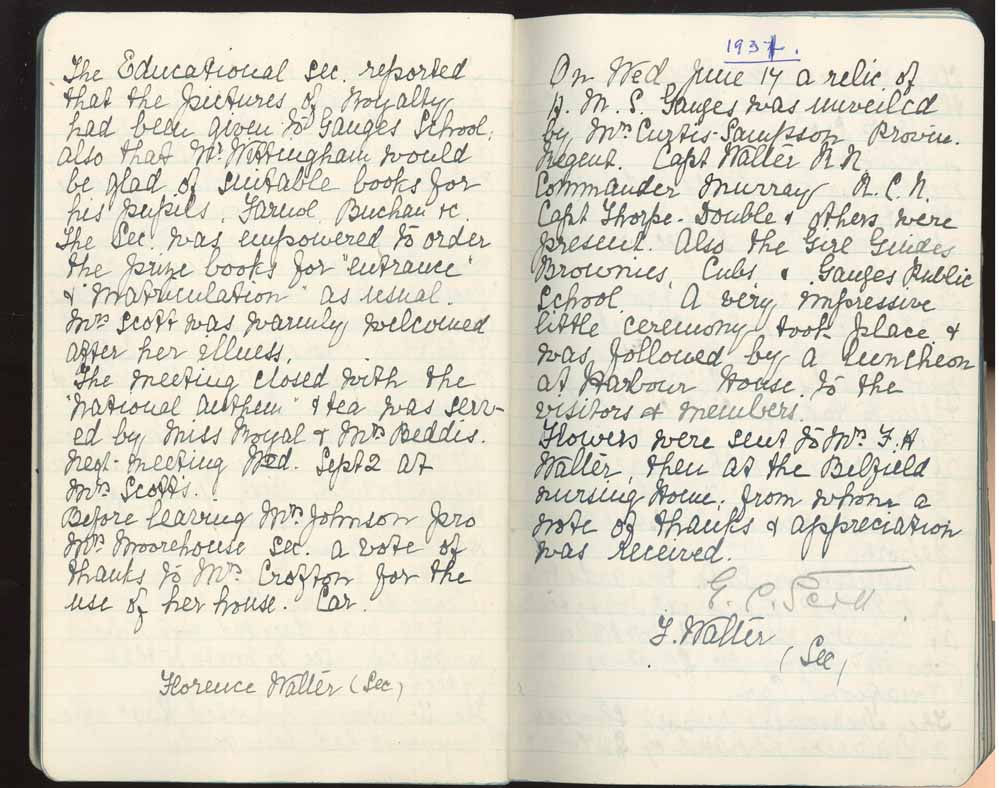 The Educational Sec. reported
that the pictures of Royalty
had been given to Ganges School;
also that Mr Wittingham would
be glad of suitable books for
his pupils. Farnol, Buchan &c.
The Sec. was empowered to order
the prize books for "entrance"
& "Matriculation" as usual.
Mrs Scott was warmly welcomed
after her illness.
The meeting closed with the
"National Anthem" & tea was serv-
ed by Miss Royal & Mrs Beddis.
Next meeting Wed. Sept 2 at
Mrs Scott's.
Before leaving Mrs Johnson pro
Mrs Moorehouse sec. a vote of
thanks to Mrs Crofton for the
use of her house. Car.
Florence Walter (Sec)
193
On Wed June 17 a relic of
H. M. S. Ganges was unveiled
by Mrs Curtis-Sampson Provin.
Regent. Capt Walter R.N.
Commander Murray R.C.N.
Capt Thorpe-Double & others were
present. Also the Girl Guides
Brownies, Cubs, & Ganges Public
School. A very impressive
little ceremony took place &
was followed by a luncheon
at Harbour House to the
visitors & members.
Flowers were sent to Mrs F. H
Walter, then at the Belfield
Nursing Home; from whom a
note of thanks & appreciation
was received.
G. C. Scott
F. Walter
(Sec)